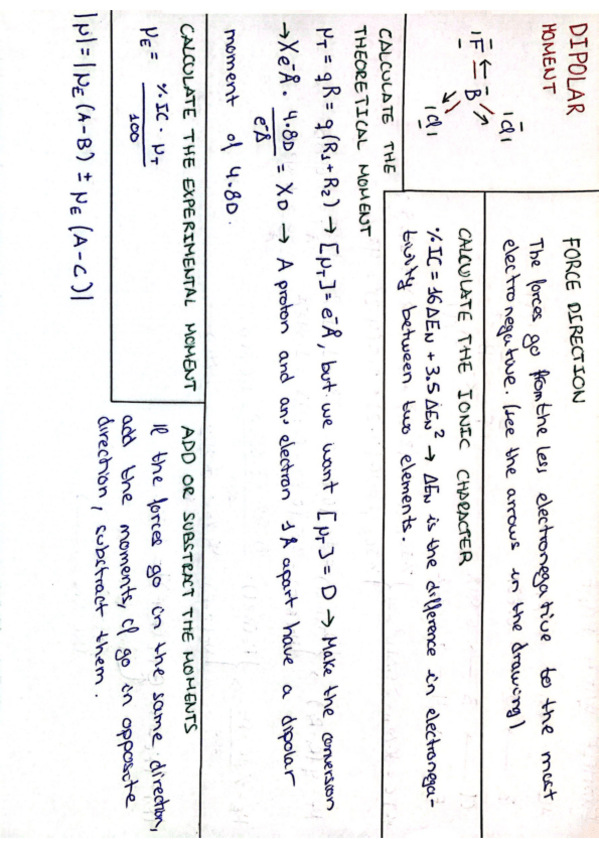 DIPOLAR
MOMENT
|F̅ ← B̅
|C̅l|
|C̲l|
FORCE DIRECTION
The forces go from the less electronegative to the most
electronegative. (see the arrows in the drawing)
CALCULATE THE IONIC CHARACTER
%IC = 16ΔEN + 3.5ΔEN² → ΔEN is the difference in electronega-
tivity between two elements.
CALCULATE THE
THEORETICAL MOMENT
μT = qR = q(R1+R2) → [μT] = e⁻Å, but we want [μT] = D → Make the conversion
→ Xe⁻Å · 4.8D / e⁻Å = XD → A proton and an electron 1Å apart have a dipolar
moment of 4.8D.
CALCULATE THE EXPERIMENTAL MOMENT
μE = %IC · μT / 100
ADD OR SUBSTRACT THE MOMENTS
If the forces go in the same direction,
add the moments, if go in opposite
direction, substract them.
|μ| = |μE (A-B) ± μE (A-C)|